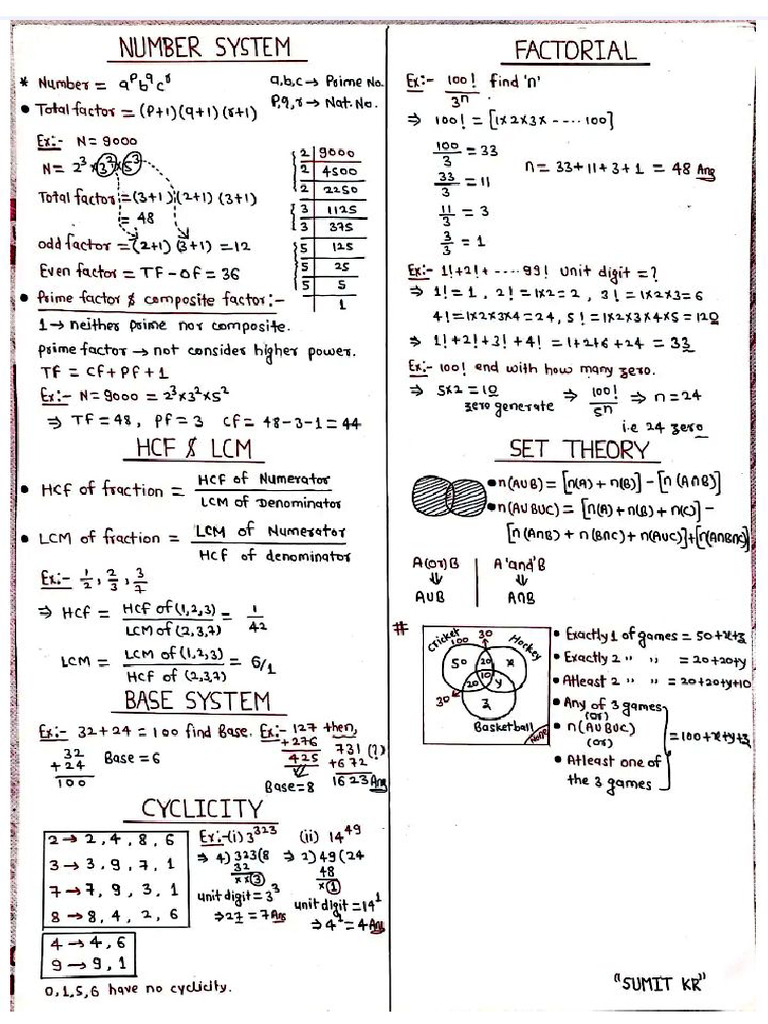 NUMBER SYSTEM
* Number = a^p b^q c^r
a,b,c → Prime No.
p,q,r → Nat. No.
• Total factor = (P+1)(q+1)(r+1)
Ex:- N = 9000
N = 2^3 × 3^2 × 5^3
Total factor = (3+1) (2+1) (3+1)
= 48
odd factor = (2+1) (3+1) = 12
Even factor = TF - OF = 36
2 | 9000
2 | 4500
2 | 2250
3 | 1125
3 | 375
5 | 125
5 | 25
5 | 5
1
• Prime factor & composite factor:-
1 → neither prime nor composite.
prime factor → not consider higher power.
TF = CF + PF + 1
Ex:- N = 9000 = 2^3×3^2×5^2
⇒ TF = 48, PF = 3 CF = 48-3-1 = 44
HCF & LCM
• HCF of fraction = HCF of Numerator / LCM of Denominator
• LCM of fraction = LCM of Numerator / HCF of denominator
Ex:- 1/2, 2/3, 3/7
⇒ HCF = HCF of (1,2,3) / LCM of (2,3,7) = 1/42
LCM = LCM of (1,2,3) / HCF of (2,3,7) = 6/1
BASE SYSTEM
Ex:- 32 + 24 = 100 find Base.
32
+24
100
Base = 6
Ex:- 127 then,
+276
425
Base = 8
731 (?)
+672
1623 Ans
CYCLICITY
2 → 2, 4, 8, 6
3 → 3, 9, 7, 1
7 → 7, 9, 3, 1
8 → 8, 4, 2, 6
4 → 4, 6
9 → 9, 1
0,1,5,6 have no cyclicity.
Ex:- (i) 3^323
⇒ 4) 323 (8
32
××(3)
unit digit = 3^3
⇒ 27 = 7 Ans
(ii) 14^49
⇒ 2) 49 (24
48
×(1)
unit digit = 14^1
⇒ 4^1 = 4 Ans
FACTORIAL
Ex:- 100! / 3^n find 'n'
⇒ 100! = [1×2×3× ----- 100]
100/3 = 33
33/3 = 11
11/3 = 3
3/3 = 1
n = 33+11+3+1 = 48 Ans
Ex:- 1!+2!+ ----- 99! Unit digit = ?
⇒ 1! = 1, 2! = 1×2 = 2, 3! = 1×2×3 = 6
4! = 1×2×3×4 = 24, 5! = 1×2×3×4×5 = 120
⇒ 1!+2!+3!+4! = 1+2+6+24 = 33
Ex:- 100! end with how many zero.
⇒ 5×2 = 10
zero generate
⇒ 100! / 5^n ⇒ n = 24
i.e 24 zero
SET THEORY
• n(AUB) = [n(A) + n(B)] - [n (A∩B)]
• n(AUBUC) = [n(A) + n(B) + n(C)] -
[n(A∩B) + n(B∩C) + n(AUC)] + [n(A∩B∩C)]
A(or)B
⇓
AUB
A 'and' B
⇓
A∩B
#
Cricket
100
30
Hockey
50
20
x
10
20
y
30
z
Basketball
None
• Exactly 1 of games = 50+x+z
• Exactly 2 " " = 20+20+y
• Atleast 2 " " = 20+20+y+10
• Any of 3 games
(or)
• n(AUBUC)
(or)
• Atleast one of
the 3 games
= 100+x+y+z
"SUMIT KR"